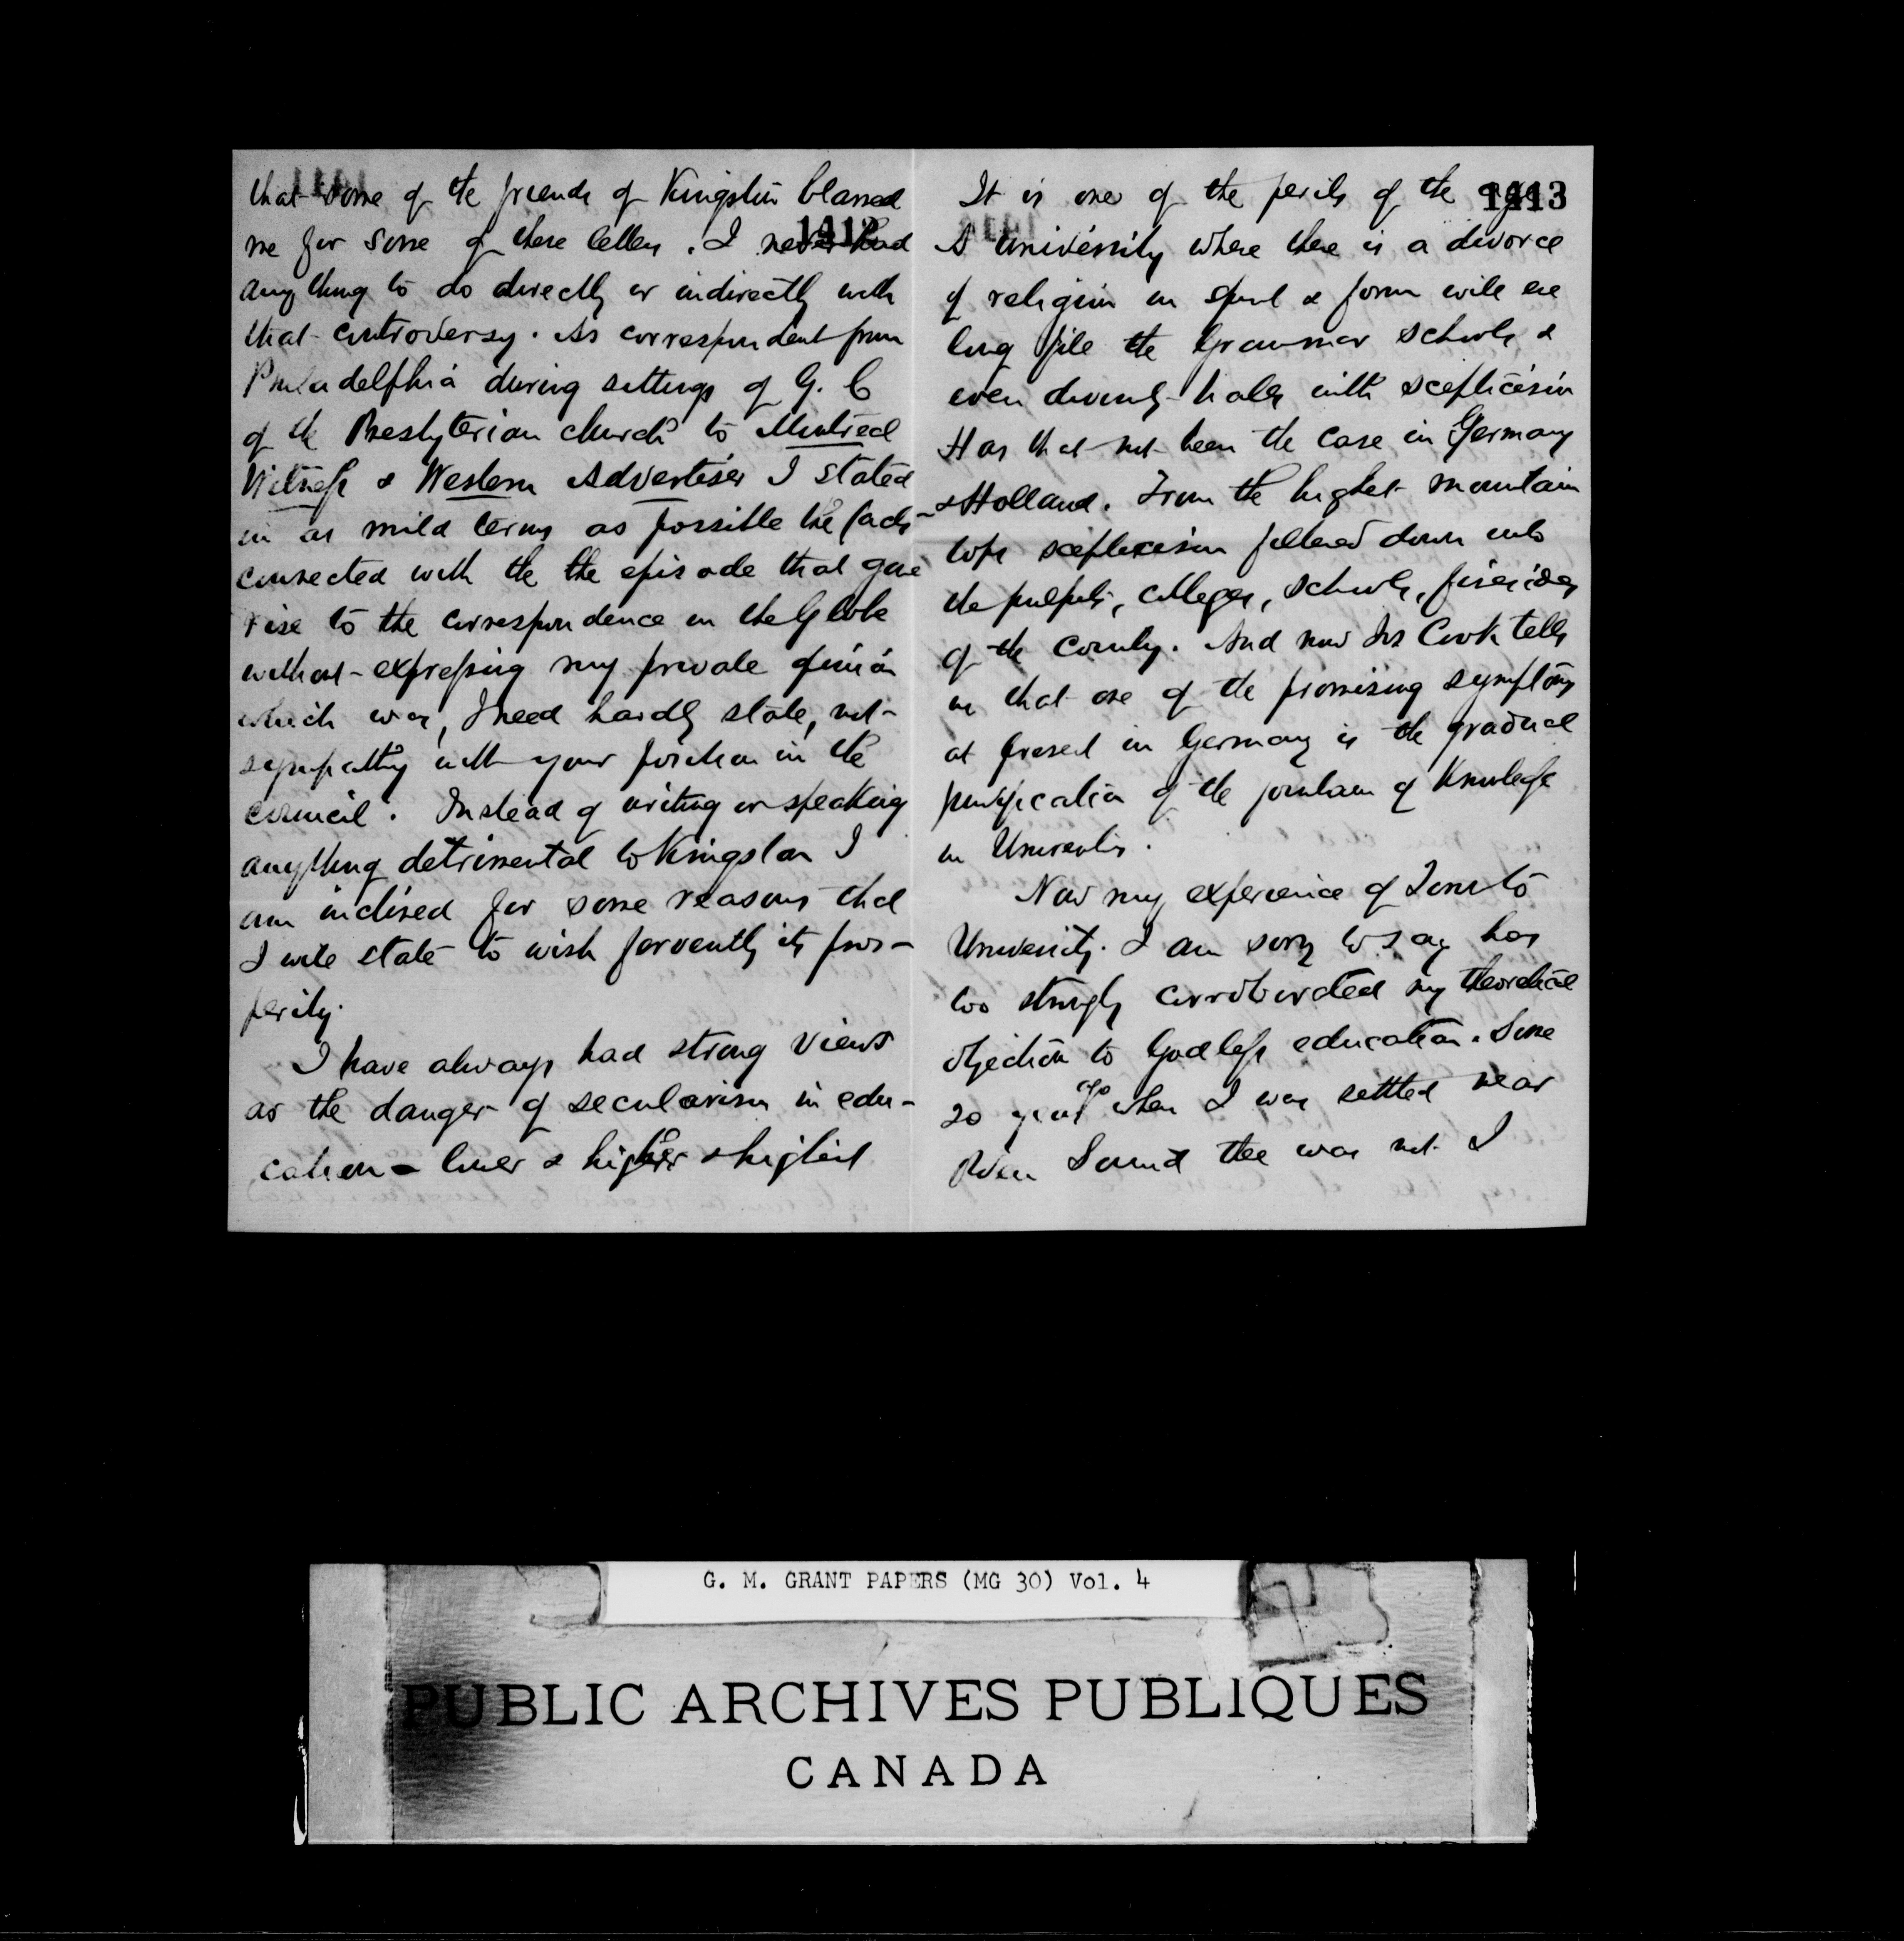 that some of the friends of Kingston blamed
1412
me for some of these letters. I never had
anything to do directly or indirectly with
that controversy. As correspondent from
Philadelphia during sittings of G. C
of the Presbyterian church to Montreal
Witness & Western Advertiser I stated
in as mild terms as possible the facts
connected with the the episode that gave
rise to the correspondence in the Globe
without expressing my private opinion
which was, I need hardly state, not
sympathy with your position in the
council. Instead of writing or speaking
anything detrimental to Kingston I
am inclined for some reasons that
I will state to wish fervently its pros-
perity.
I have always had strong views
as the danger of secularism in edu-
cation - lower & higher & highest
1413
It is one of the perils of the age
A university where there is a divorce
of religion in spirit & form will ere
long fill the Grammar schools &
even divinity halls with scepticism
Has that not been the case in Germany
& Holland. From the highest mountain
tops scepticism filtered down into
the pulpits, colleges, schools, firesides
of the country. And now Jos Cook tells
us that one of the promising symptoms
at present in Germany is the gradual
purification of the fountain of Knowledge
in Universities.
Now my experience of Toronto
University. I am sorry to say has
too strongly corroborated my theoretical
objection to Godless education. Some
20 years ago when I was settled near
Owen Sound there was not I
G. M. GRANT PAPERS (MG 30) Vol. 4
PUBLIC ARCHIVES PUBLIQUES
CANADA